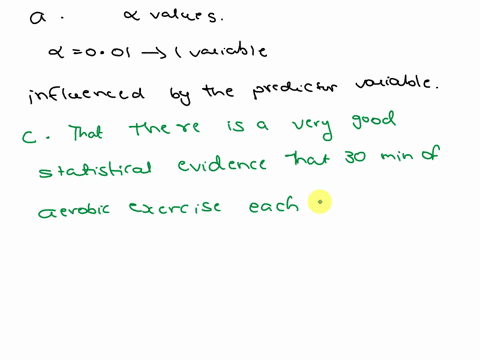 a. α values.
α = 0.01 → 1 variable
influenced by the predictor variable.
c. That there is a very good
statistical evidence that 30 min of
aerobic exercise each